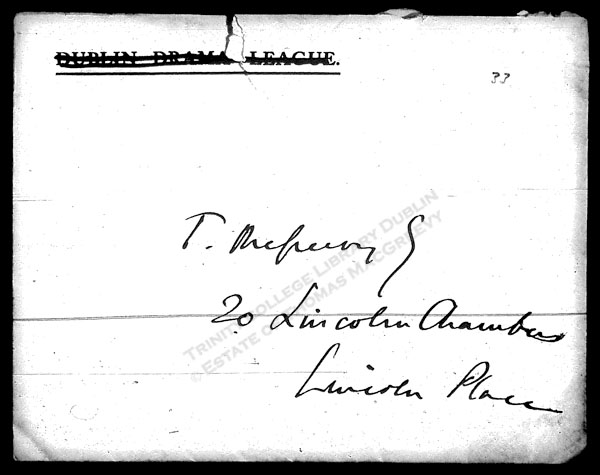 DUBLIN DRAMA LEAGUE.
33
T. McGreevy
20 Lincoln Chambers
Lincoln Place
TRINITY COLLEGE LIBRARY DUBLIN
© ESTATE OF THOMAS MACGREEVY